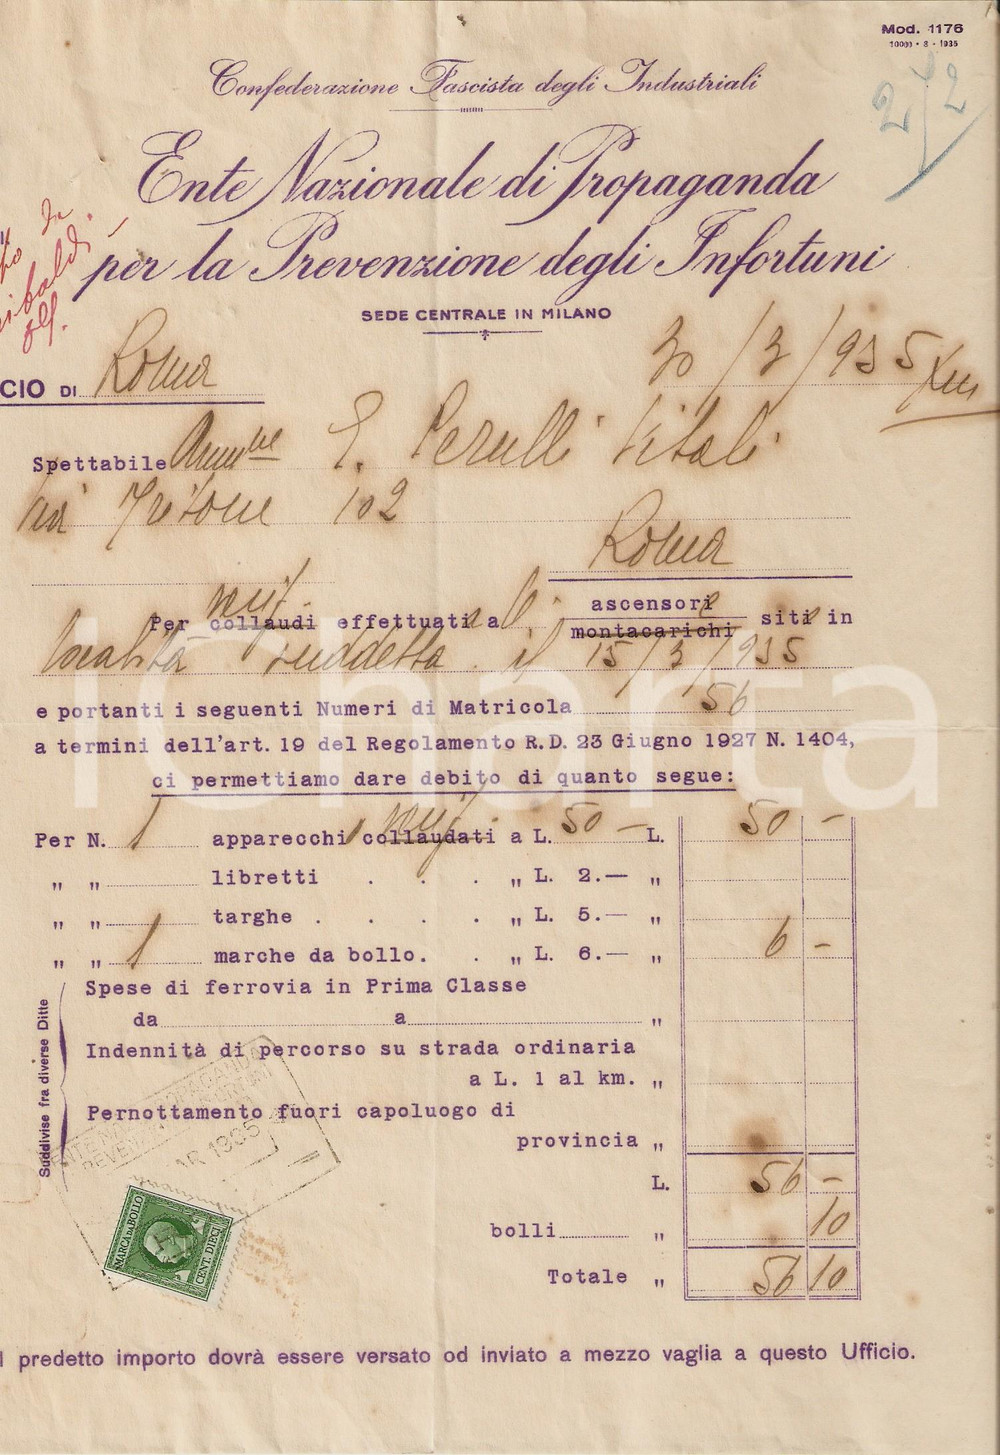 Mod. 1176
10000 - 3 - 1935
Confederazione Fascista degli Industriali
2/2
Ente Nazionale di Propaganda
per la Prevenzione degli Infortuni
SEDE CENTRALE IN MILANO
CIO DI Roma
30/3/935 XIII
Spettabile E. Perulli Vitali
Via Tritone 102
Roma
Per collaudi effettuati a ascensori
montacarichi siti in
località suddetta il 15/3/935
e portanti i seguenti Numeri di Matricola 56
a termini dell'art. 19 del Regolamento R. D. 23 Giugno 1927 N. 1404,
ci permettiamo dare debito di quanto segue:
Per N. 1 apparecchi collaudati a L. 50 — L. 50 —
„ „ libretti . . . „ L. 2.— „
„ „ targhe . . . . „ L. 5.— „
„ „ 1 marche da bollo. . . „ L. 6.— „ 6 —
Suddivise fra diverse Ditte
Spese di ferrovia in Prima Classe
da a „
Indennità di percorso su strada ordinaria
a L. 1 al km. „
Pernottamento fuori capoluogo di
provincia „
L. 56 —
bolli „ 10
Totale „ 56 10
AR 1935
MARCA DA BOLLO
CENT. DIECI
l predetto importo dovrà essere versato od inviato a mezzo vaglia a questo Ufficio.
IChArta